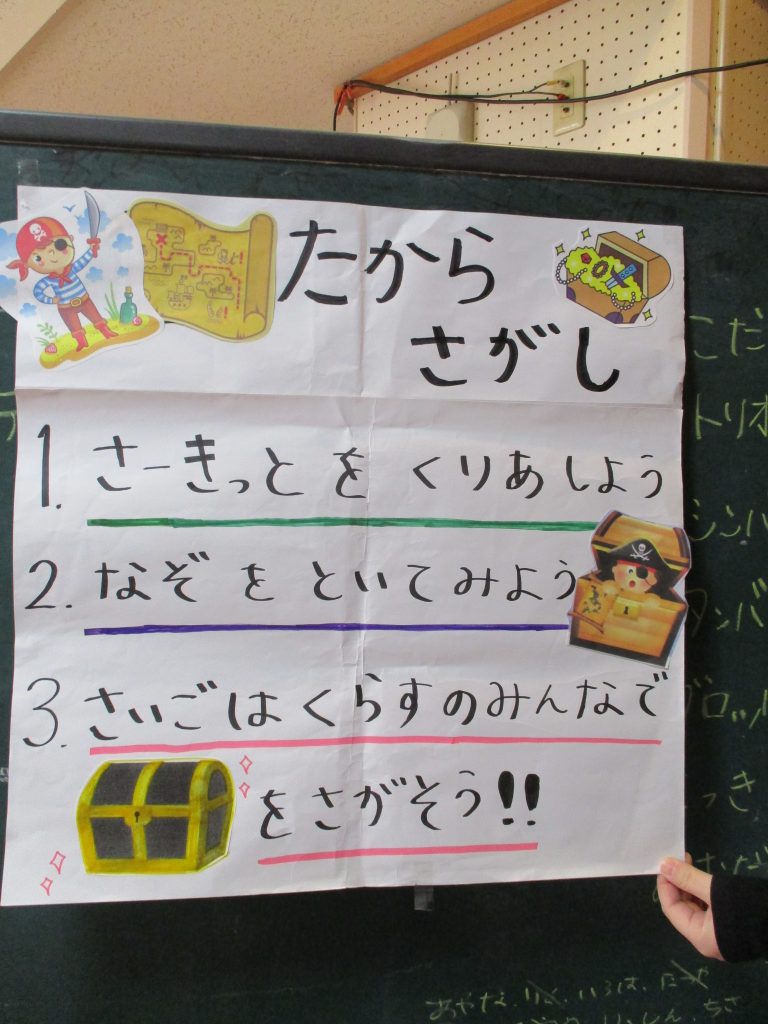 たから
さがし
1. さーきっと を くりあしよう
2. なぞ を といてみよう
3. さいごは くらすのみんなで
をさがそう!!
こだ
トリオ
シンバ
タンバ
ブロッ
っき
あやな、りく、いろは、